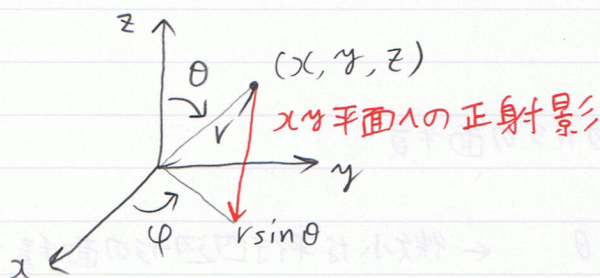 z
θ
(x, y, z)
r
xy平面への正射影
y
φ
r sinθ
x